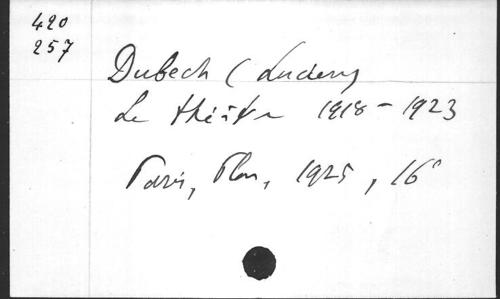 420
257
Dubech (Lucien)
Le théâtre 1918-1923
Paris, Plon, 1925, 16°